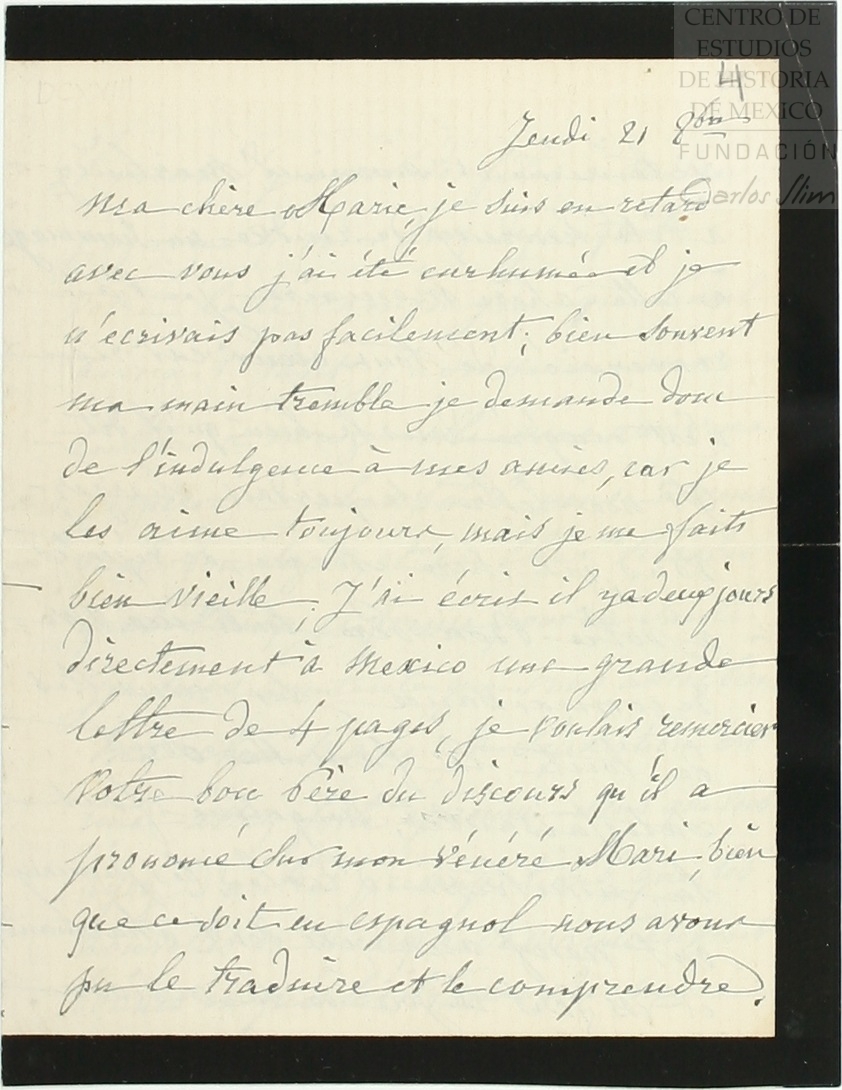 CENTRO DE
ESTUDIOS
DE HISTORIA
DE MEXICO
FUNDACIÓN
Carlos Slim
4
Jeudi 21 8bre
ma chère Marie, je suis en retard
avec vous j'ai été enrhumée et je
n'ecrivais pas facilement; bien souvent
ma main tremble je demande donc
de l'indulgence à mes amies, car je
les aime toujours, mais je me faits
bien vieille; J'ai écris il y a deux jours
directement à Mexico une grande
lettre de 4 pages, je voulais remercier
votre bon Père du discours qu'il a
prononcé sur mon vénéré Mari, bien
que ce soit en espagnol nous avons
pu le traduire et le comprendre.